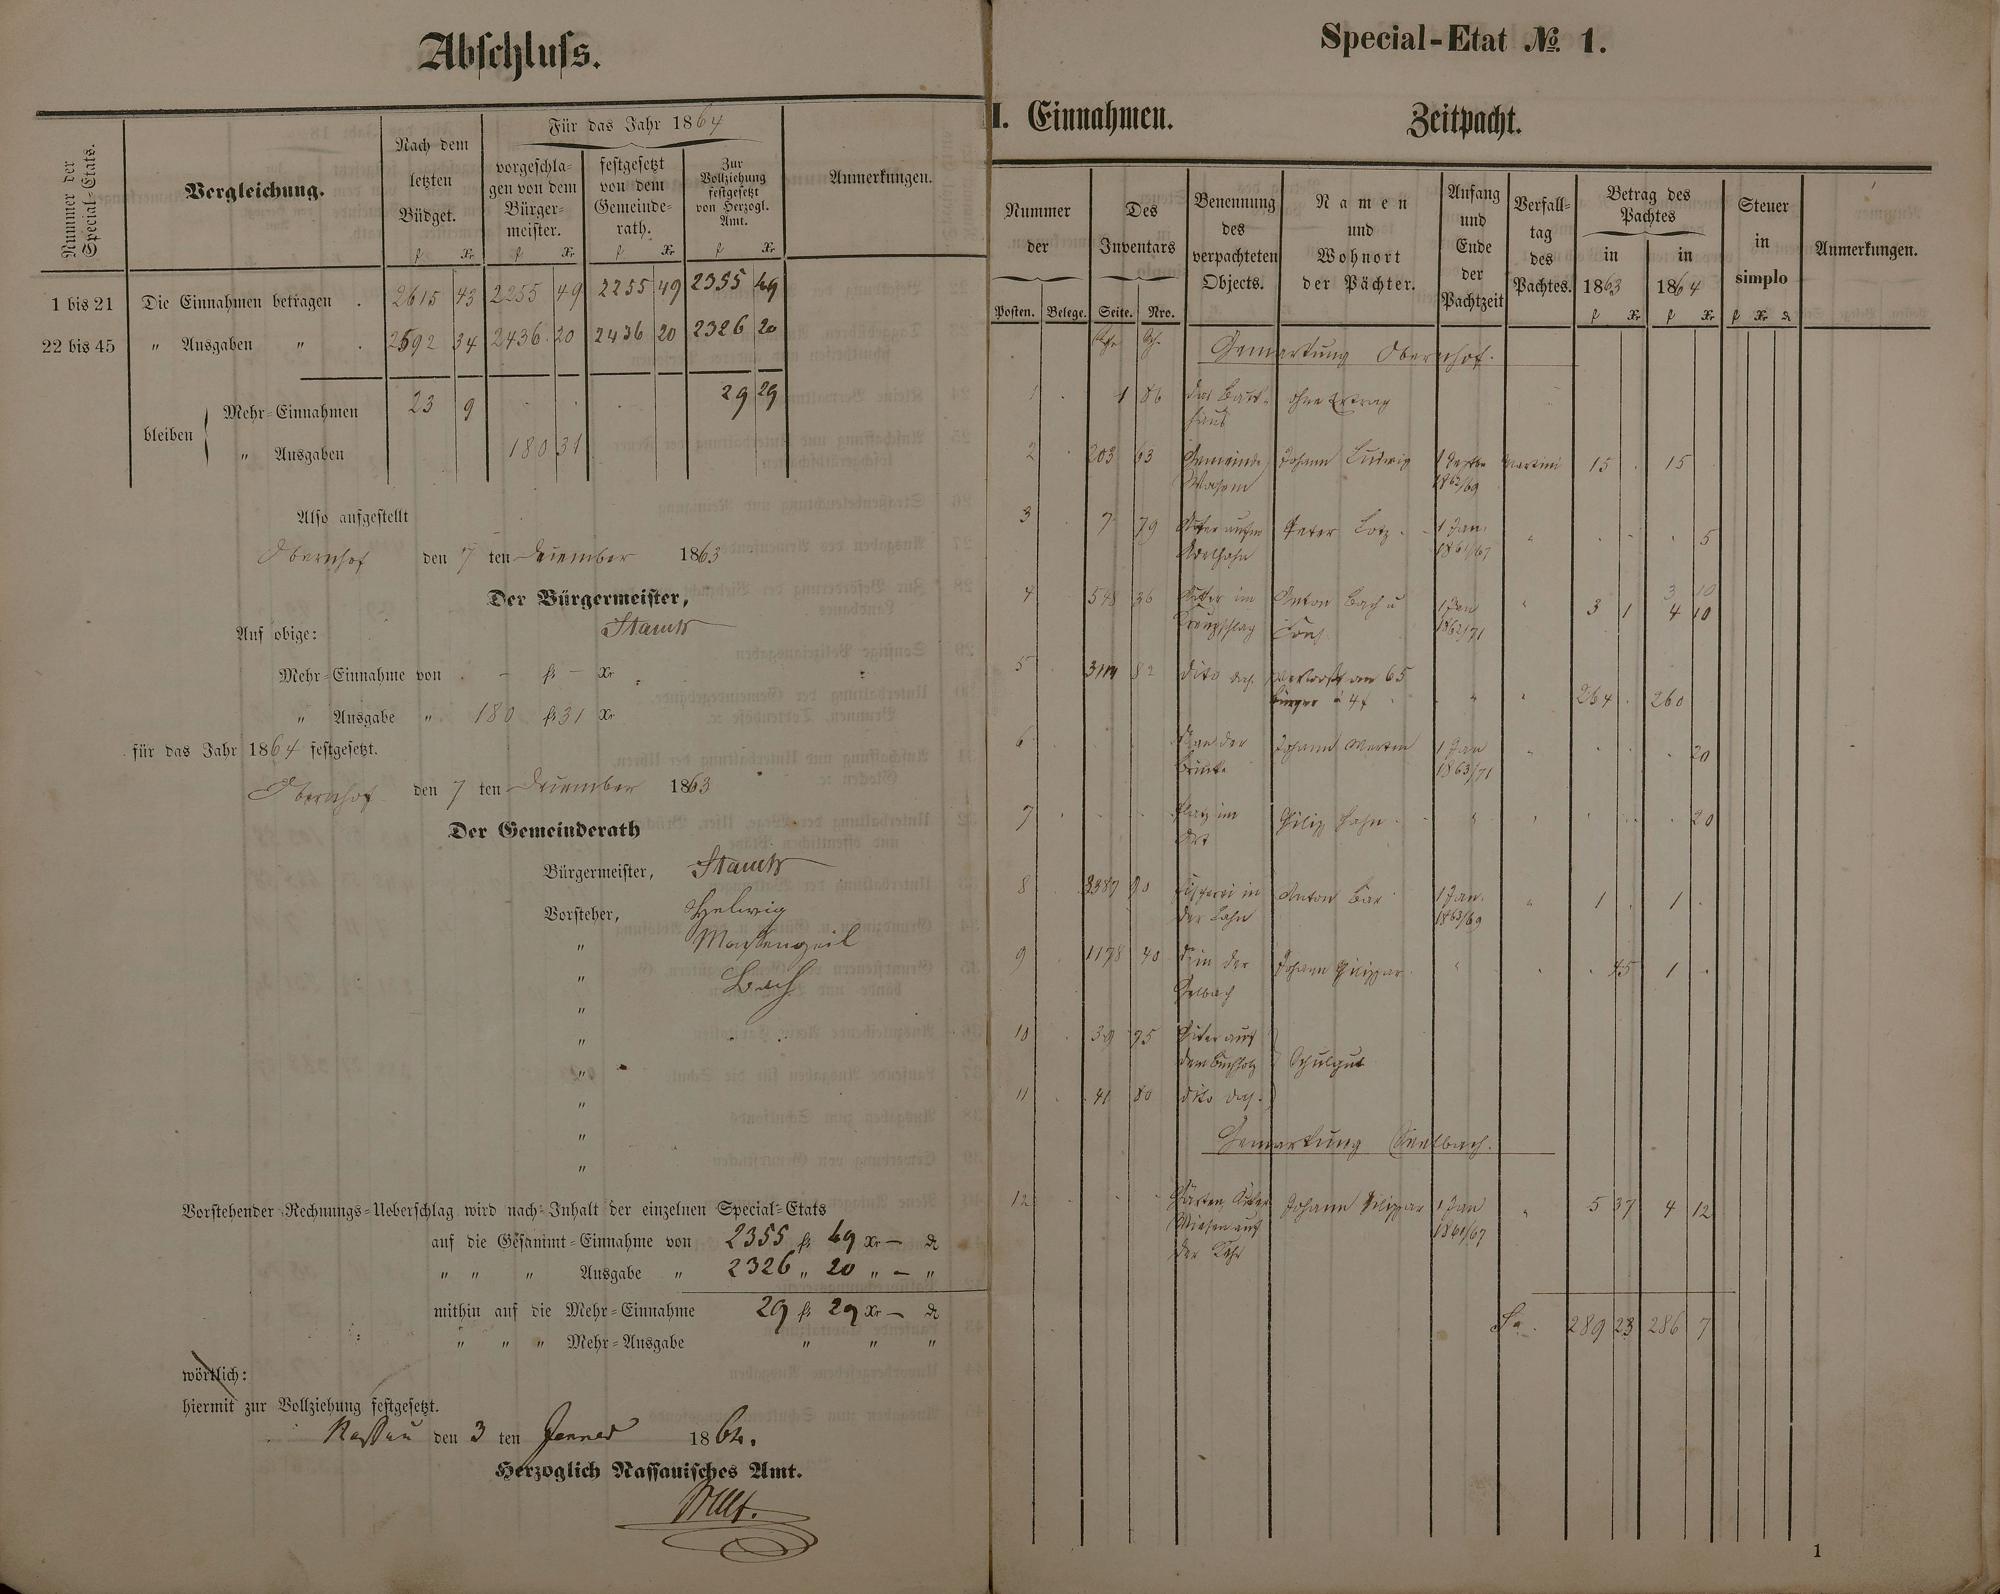 Abschluss.
Nummer der Special-Etats.
Vergleichung.
Nach dem letzten Büdget.
Für das Jahr 1864
vorgeschlagen von dem Bürgermeister.
festgesetzt von dem Gemeinderath.
Zur Vollziehung festgesetzt von Herzogl. Amt.
Anmerkungen.
fl Xr fl Xr fl Xr fl Xr
1 bis 21 Die Einnahmen betragen . 2615 43 2255 49 2255 49 2355 49
22 bis 45 " Ausgaben " . 2592 34 2436 20 2436 20 2326 20
bleiben
Mehr-Einnahmen 23 9 . . . 29 29
" Ausgaben 180 31
Also aufgestellt
Obernhof den 7 ten December 1863
Der Bürgermeister,
Auf obige:
Mehr-Einnahme von - fl - Xr
" Ausgabe " 180 fl 31 Xr
für das Jahr 1864 festgesetzt.
Obernhof den 7 ten December 1863
Der Gemeinderath
Bürgermeister,
Vorsteher, Helwig
" Massengeil
" Bach
"
"
"
"
"
"
Vorstehender Rechnungs-Ueberschlag wird nach Inhalt der einzelnen Special-Etats
auf die Gesammt-Einnahme von 2355 fl 49 Xr — ₰
" " " Ausgabe " 2326 " 20 " — "
mithin auf die Mehr-Einnahme 29 fl 29 Xr — ₰
" " " Mehr-Ausgabe " " "
wörtlich:
hiermit zur Vollziehung festgesetzt.
Nassau den 3 ten Jenner 1864.
Herzoglich Nassauisches Amt.
Special-Etat No. 1.
I. Einnahmen. Zeitpacht.
Nummer der
Posten. Belege.
Des Inventars
Seite. Nro.
Benennung des verpachteten Objects.
Namen und Wohnort der Pächter.
Anfang und Ende der Pachtzeit
Verfalltag des Pachtes.
Betrag des Pachtes
in 1863 in 1864
fl Xr fl Xr
Steuer in simplo
fl Xr ₰
Anmerkungen.
Gemarkung Obernhof.
1 . 1 86 das Backhaus ohne Ertrag
2 . 203 63 Gemeinde Wasem Johann Ludwig 1862/69 Martini 15 . 15 .
3 . 7 79 Acker Peter Lotz 1 Jan. 1861/67 " . . . 5
4 . 548 36 Acker im Anton Bach u Cons. 1 Jan 1862/71 " 3 1 4 10
3 10
5 82 dito 65 Bürger á 4f " " 264 . 260
6 Johann 1 Jan 1863/71 " . . . 20
7 . . . Platz im Ort Philip Hahn " " . . . 20
8 3387 90 Fischerei in der Lahn Anton Bär 1 Jan. 1863/69 " 1 . 1 .
9 1178 40 in der Gelbach Johann Philippar " " . 45 1 .
10 . 39 95 dem Buchholz Schulgut
11 . 41 80 dito
Gemarkung Seelbach.
12 . . . Gärten, Äcker, Wiesen auf der Johann Philippar 1 Jan 1861/67 " 5 37 4 12
Sa. 289 23 286 7
1